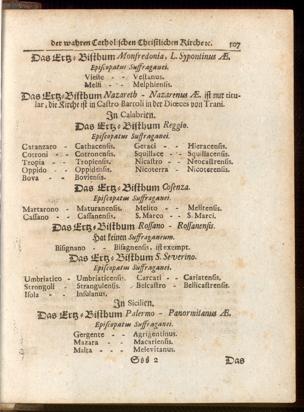 der wahren Catholischen Christlichen Kirche ꝛc. 507
Das Ertz-Bisthum Monfredonia, L. Sypontinus Æ.
Episcopatus Suffraganei.
Vieste - - Vestanus.
Melfi - - Melphiensis.
Das Ertz-Bisthum Nazareth - Nazarenus Æ. ist nur titu-
lar, die Kirche ist in Castro Barcoli in der Diœces von Trani.
In Calabrien.
Das Ertz-Bisthum Reggio.
Episcopatus Suffraganei.
Catanzaro - Cathacensis. Geraci - - Hieracensis.
Cotroni - - Cotronensis. Squillace - - Squillacensis.
Tropia - - Tropiensis. Nicastro - - Neocastrensis.
Oppido - - Oppidensis. Nicoterra - - Nicoterensis.
Bova - - Boviensis.
Das Ertz-Bisthum Cosenza.
Episcopatus Suffraganei.
Martarono - Maturanensis. Melito - - Melitensis.
Cassano - - Cassanensis. S. Marco - - S. Marci.
Das Ertz-Bisthum Rossano - Rossanensis.
Hat keinen Suffraganeum.
Bisignano - - Bisignanensis, ist exempt.
Das Ertz-Bisthum S. Severino.
Episcopatus Suffraganei.
Umbriatico - Umbriaticensis. Carcati - - Cariatensis.
Strongoli - Strangulensis. Belcastro - Bellicastrensis.
Isola - - Insulanus.
In Sicilien.
Das Ertz-Bisthum Palermo - Panormitanus Æ.
Episcopatus Suffraganei.
Gergente - - Agrigentinus.
Mazara - - Mazariensis.
Malta - - Melevitanus.
Sss 2 Das